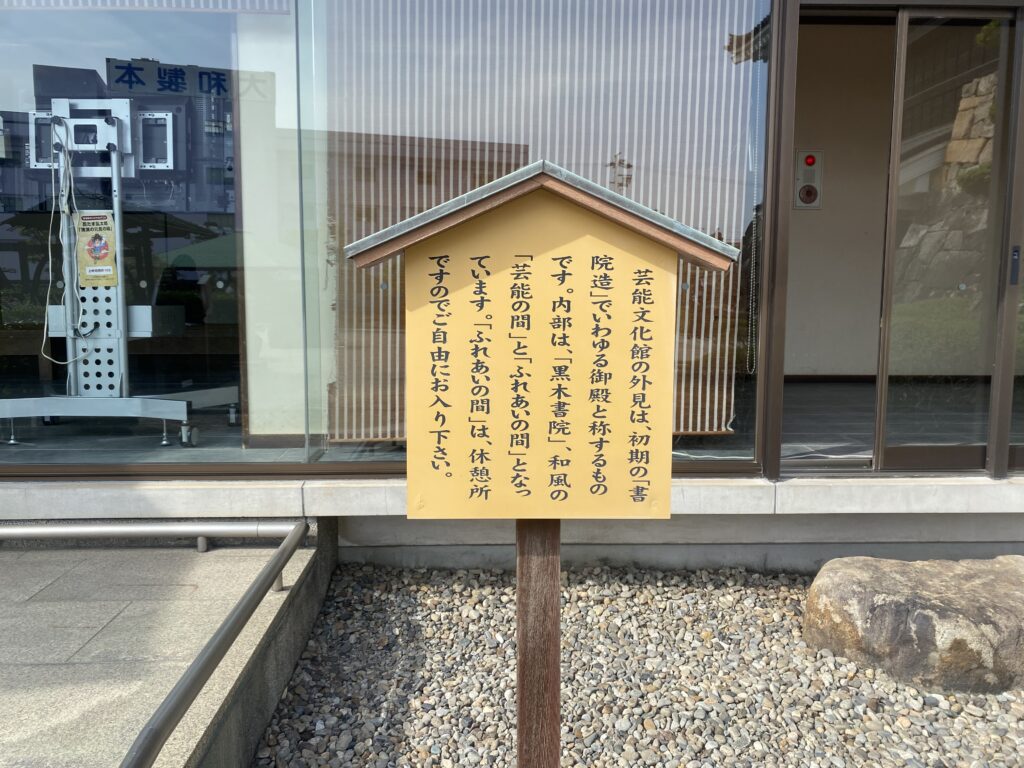 芸能文化館の外見は、初期の「書
院造」でいわゆる御殿と称するもの
です。内部は、「黒木書院」、和風の
「芸能の間」と「ふれあいの間」となっ
ています。「ふれあいの間」は、休憩所
ですのでご自由にお入り下さい。
大和製本